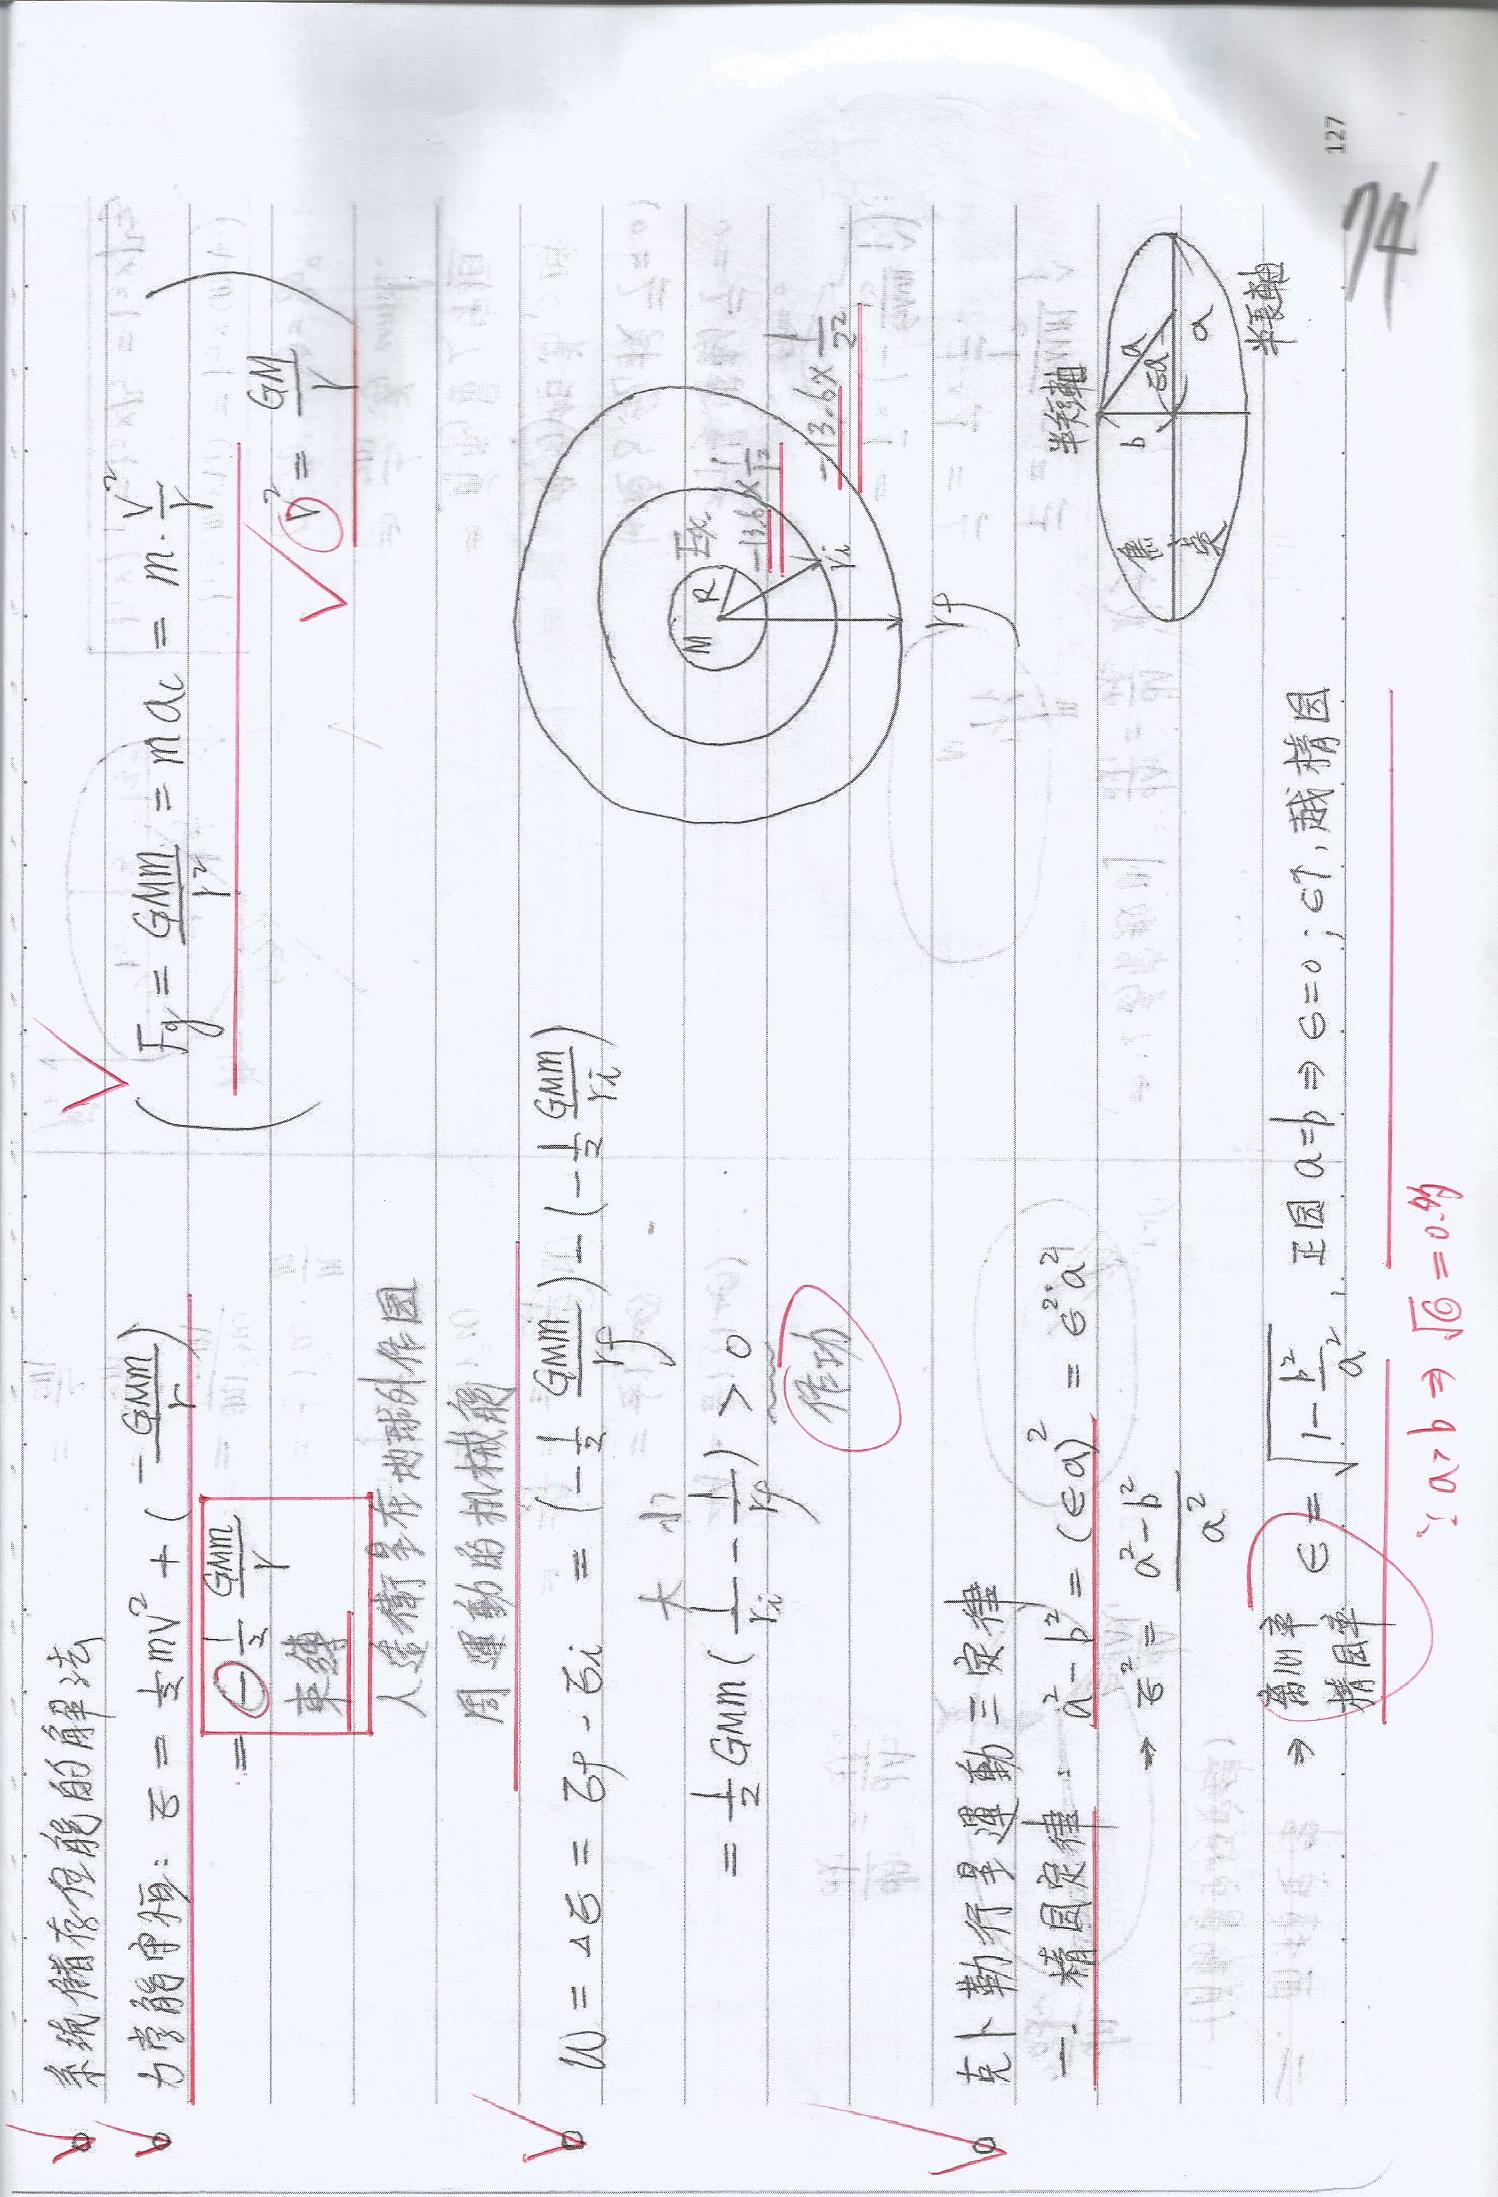 系統儲存位能的解法
力學能守恆: E = ½mv² + (-GMm/r)
= -½ GMm/r
束縛
(Fg = GMm/r² = mac = m·v²/r
v² = GM/r)
人造衛星在地球外作圓
周運動的机械能
W = ΔE = Ef - Ei = (-½ GMm/rf) - (-½ GMm/ri)
大 小
= ½ GMm(1/ri - 1/rf) > 0
作功
M R ri rf
Ex.
-13.6 × 1/1²
-13.6 × 1/2²
克卜勒行星運動三定律
一. 橢圓定律: a² - b² = (εa)² = ε²·a²
⇒ ε² = (a² - b²)/a²
⇒ 離心率 ε = √(1 - b²/a²), 正圓 a=b ⇒ ε=0; ε↑, 越橢圓
橢圓率
半短軸
b a εa a
焦
半長軸
∵ a>b ⇒
127
74